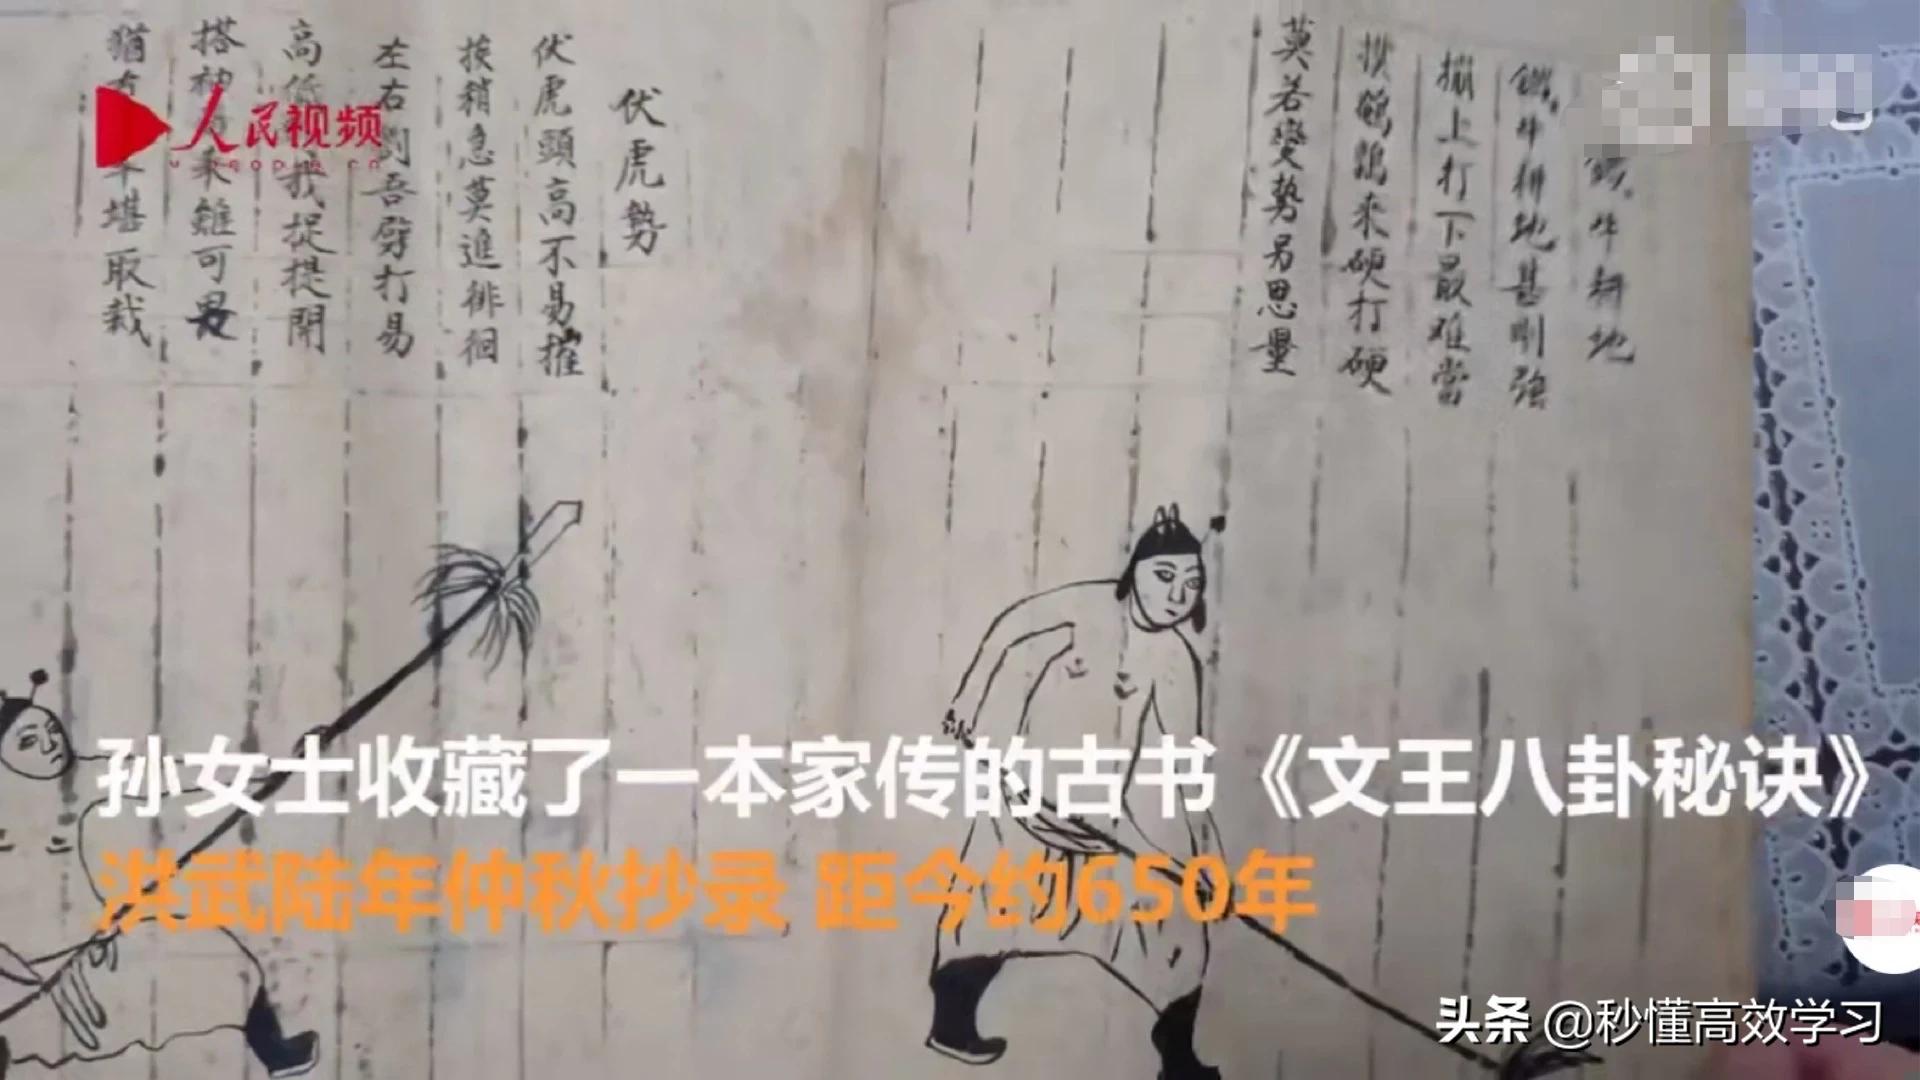 牛耕地
牛耕地甚刚强
搠上打下最难當
來硬打硬
莫若變勢另思量
伏虎勢
伏虎頭高不易摧
挨稍急莫進徘徊
左右吾劈打易
高低我捉提開
搭雖可
猶堪取裁
人民视频
孙女士收藏了一本家传的古书《文王八卦秘诀》
洪武陆年仲秋抄录 距今约650年
头条 @秒懂高效学习